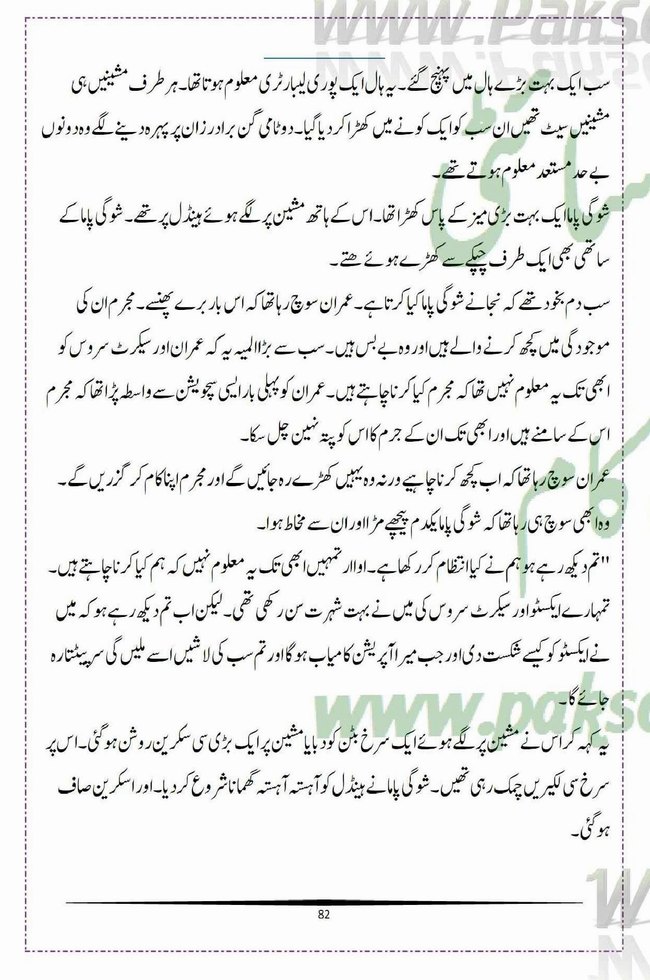 www.Pakso
سب ایک بہت بڑے ہال میں پہنچ گئے۔ یہ ہال ایک پوری لیبارٹری معلوم ہوتا تھا۔ ہر طرف مشینیں ہی
مشینیں سیٹ تھیں ان سب کو ایک کونے میں کھڑا کر دیا گیا۔ دو ٹامی گن بردار ان پر پہرہ دینے لگے وہ دونوں
بے حد مستعد معلوم ہوتے تھے۔
شوگی پاما ایک بہت بڑی میز کے پاس کھڑا تھا۔ اس کے ہاتھ مشین پر لگے ہوئے ہینڈل پر تھے۔ شوگی پاما کے
ساتھی بھی ایک طرف چپکے سے کھڑے ہوئے ھتے۔
سب دم بخود تھے کہ نجانے شوگی پاما کیا کرتا ہے۔ عمران سوچ رہا تھا کہ اس بار برے پھنسے۔ مجرم ان کی
موجودگی میں کچھ کرنے والے ہیں اور وہ بے بس ہیں۔ سب سے بڑا المیہ یہ کہ عمران اور سیکرٹ سروس کو
ابھی تک یہ معلوم نہیں تھا کہ مجرم کیا کرنا چاہتے ہیں۔ عمران کو پہلی بار ایسی سچویشن سے واسطہ پڑا تھا کہ مجرم
اس کے سامنے ہیں اور ابھی تک ان کے جرم کا اس کو پتہ نہین چل سکا۔
عمران سوچ رہا تھا کہ اب کچھ کرنا چاہیے ورنہ وہ یہیں کھڑے رہ جائیں گے اور مجرم اپنا کام کر گزریں گے۔
وہ ابھی سوچ ہی رہا تھا کہ شوگی پاما یکدم پیچھے مڑا اور ان سے مخاط ہوا۔
"تم دیکھ رہے ہو ہم نے کیا انتظام کر رکھا ہے۔ اواار تمہیں ابھی تک یہ معلوم نہیں کہ ہم کیا کرنا چاہتے ہیں۔
تمہارے ایکسٹو اور سیکرٹ سروس کی میں نے بہت شہرت سن رکھی تھی۔ لیکن اب تم دیکھ رہے ہو کہ میں
نے ایکسٹو کو کیسے شکست دی اور جب میرا آپریشن کامیاب ہو گا اور تم سب کی لاشیں اسے ملیں گی سر پیٹتا رہ
جائے گا۔
www.pakso
یہ کہہ کر اس نے مشین پر لگے ہوئے ایک سرخ بٹن کو دبایا مشین پر ایک بڑی سی سکرین روشن ہو گئی۔ اس پر
سرخ سی لکیریں چمک رہی تھیں۔ شوگی پاما نے ہینڈل کو آہستہ آہستہ گھمانا شروع کر دیا۔ اور اسکرین صاف
ہو گئی۔
82